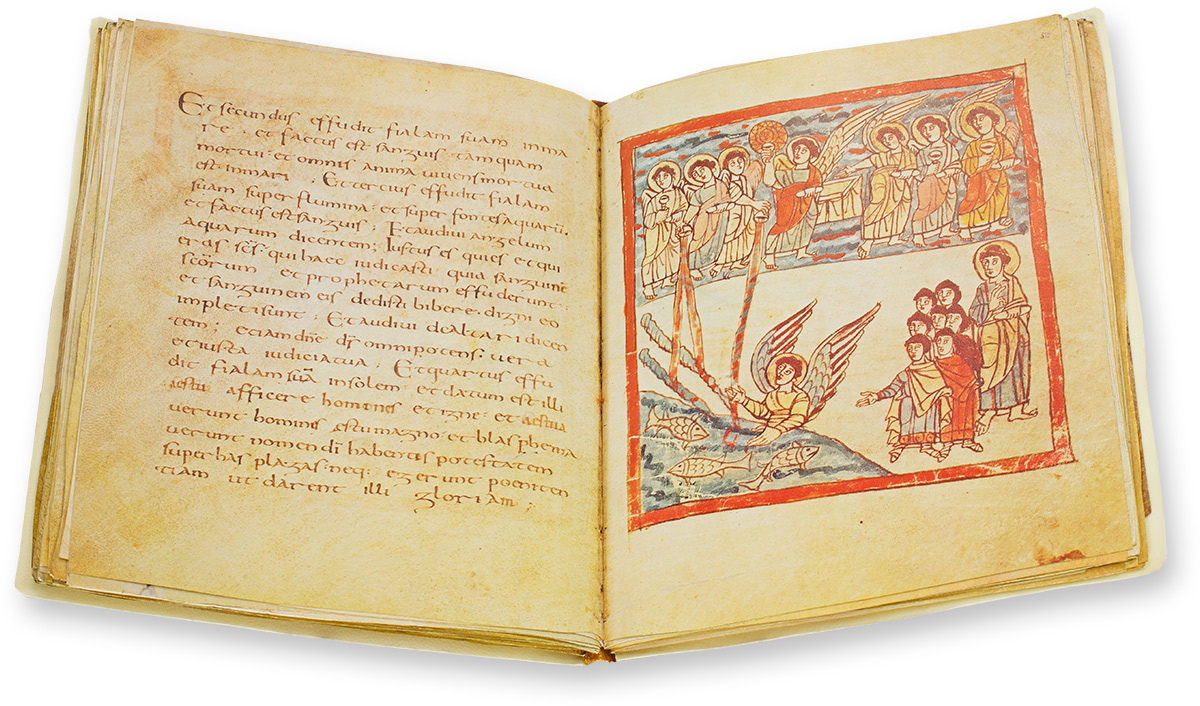 Et secundus effudit fialam suam inma
re · et factus est sanguis tamquam
mortui · et omnis anima uiuens mortua
est inmari Et tertius effudit fialam
suam super flumina · et super fontes aquarū,
et factus est sanguis · Et audiui angelum
aquarum dicentem; Iustus es qui es et qui
eras scs · qui haec iudicasti quia sanguine
scorum et prophetarum effuderunt ·
et sanguinem eis dedisti bibere · digni eo
impletisunt · Et audiui de altari dicen
tem · etiam dne ds omnipotens · uera
et iusta iudicia tua · Et quartus effu
dit fialam suā insolem et datum est illi
aestu afficere hominis et igne · et aestua
uerunt hominis estu magno · et blasphema
uerunt nomen di habentis potestatem
super has plagas · neq: egerunt poeniten
tiam ut darent illi gloriam ;